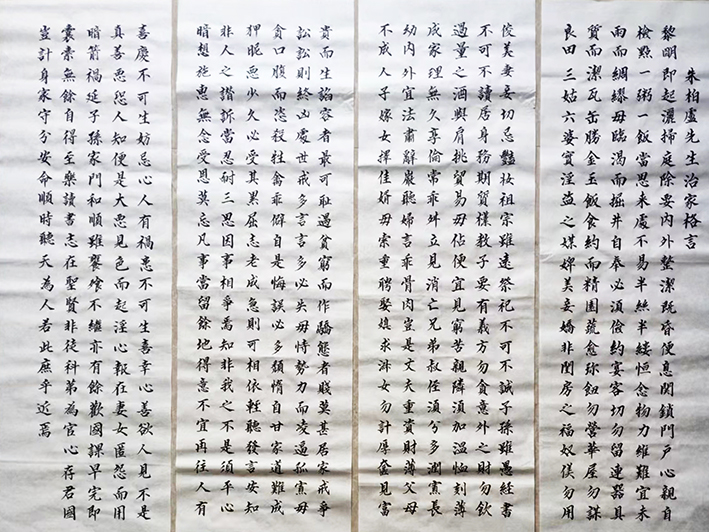 朱柏廬先生治家格言
黎明即起灑掃庭除要內外整潔既昏便息関鎖門戶心親自
檢點一粥一飯當思来處不易半絲半縷恒念物力維難宜未
雨而綢繆毋臨渴而掘井自奉必須儉約宴客切勿留連器具
質而潔瓦缶勝金玉飯食約而精園蔬愈珍勿營華屋勿謀
良田三姑六婆實淫盜之媒婢美妾嬌非閨房之福奴僕勿用
俊美妻妾切忌艷妝祖宗雖遠祭祀不可不誠子孫雖愚經書
不可不讀居身務期質樸教子要有義方勿貪意外之財勿飲
過量之酒與肩挑貿易毋佔便宜見窮苦親隣須加溫恤刻薄
成家理無久享倫常乖舛立見消亡兄弟叔侄須分多潤寡長
幼內外宜法肅辭嚴聽婦言乖骨肉豈是丈夫重資財薄父母
不成人子嫁女擇佳婿毋索重聘娶媳求淑女勿計厚奩見富
貴而生諂容者最可恥遇貧窮而作驕態者賤莫甚居家戒爭
訟訟則終凶處世戒多言言多必失毋恃勢力而凌逼孤寡毋
貪口腹而恣殺牲禽乖僻自是悔誤必多頹惰自甘家道難成
狎昵惡少久必受其累屈志老成急則可相依輕聽發言安知
非人之譖訴當忍耐三思因事相爭焉知非我之不是須平心
暗想施惠無念受恩莫忘凡事當留餘地得意不宜再往人有
喜慶不可生妨忌心人有禍患不可生喜幸心善欲人見不是
真善惡恐人知便是大惡見色而起淫心報在妻女匿怨而用
暗箭禍延子孫家門和順雖饔飧不繼亦有餘歡國課早完即
囊橐無餘自得至樂讀書志在聖賢非徒科第為官心存君國
豈計身家守分安命順時聽天為人若此庶乎近焉